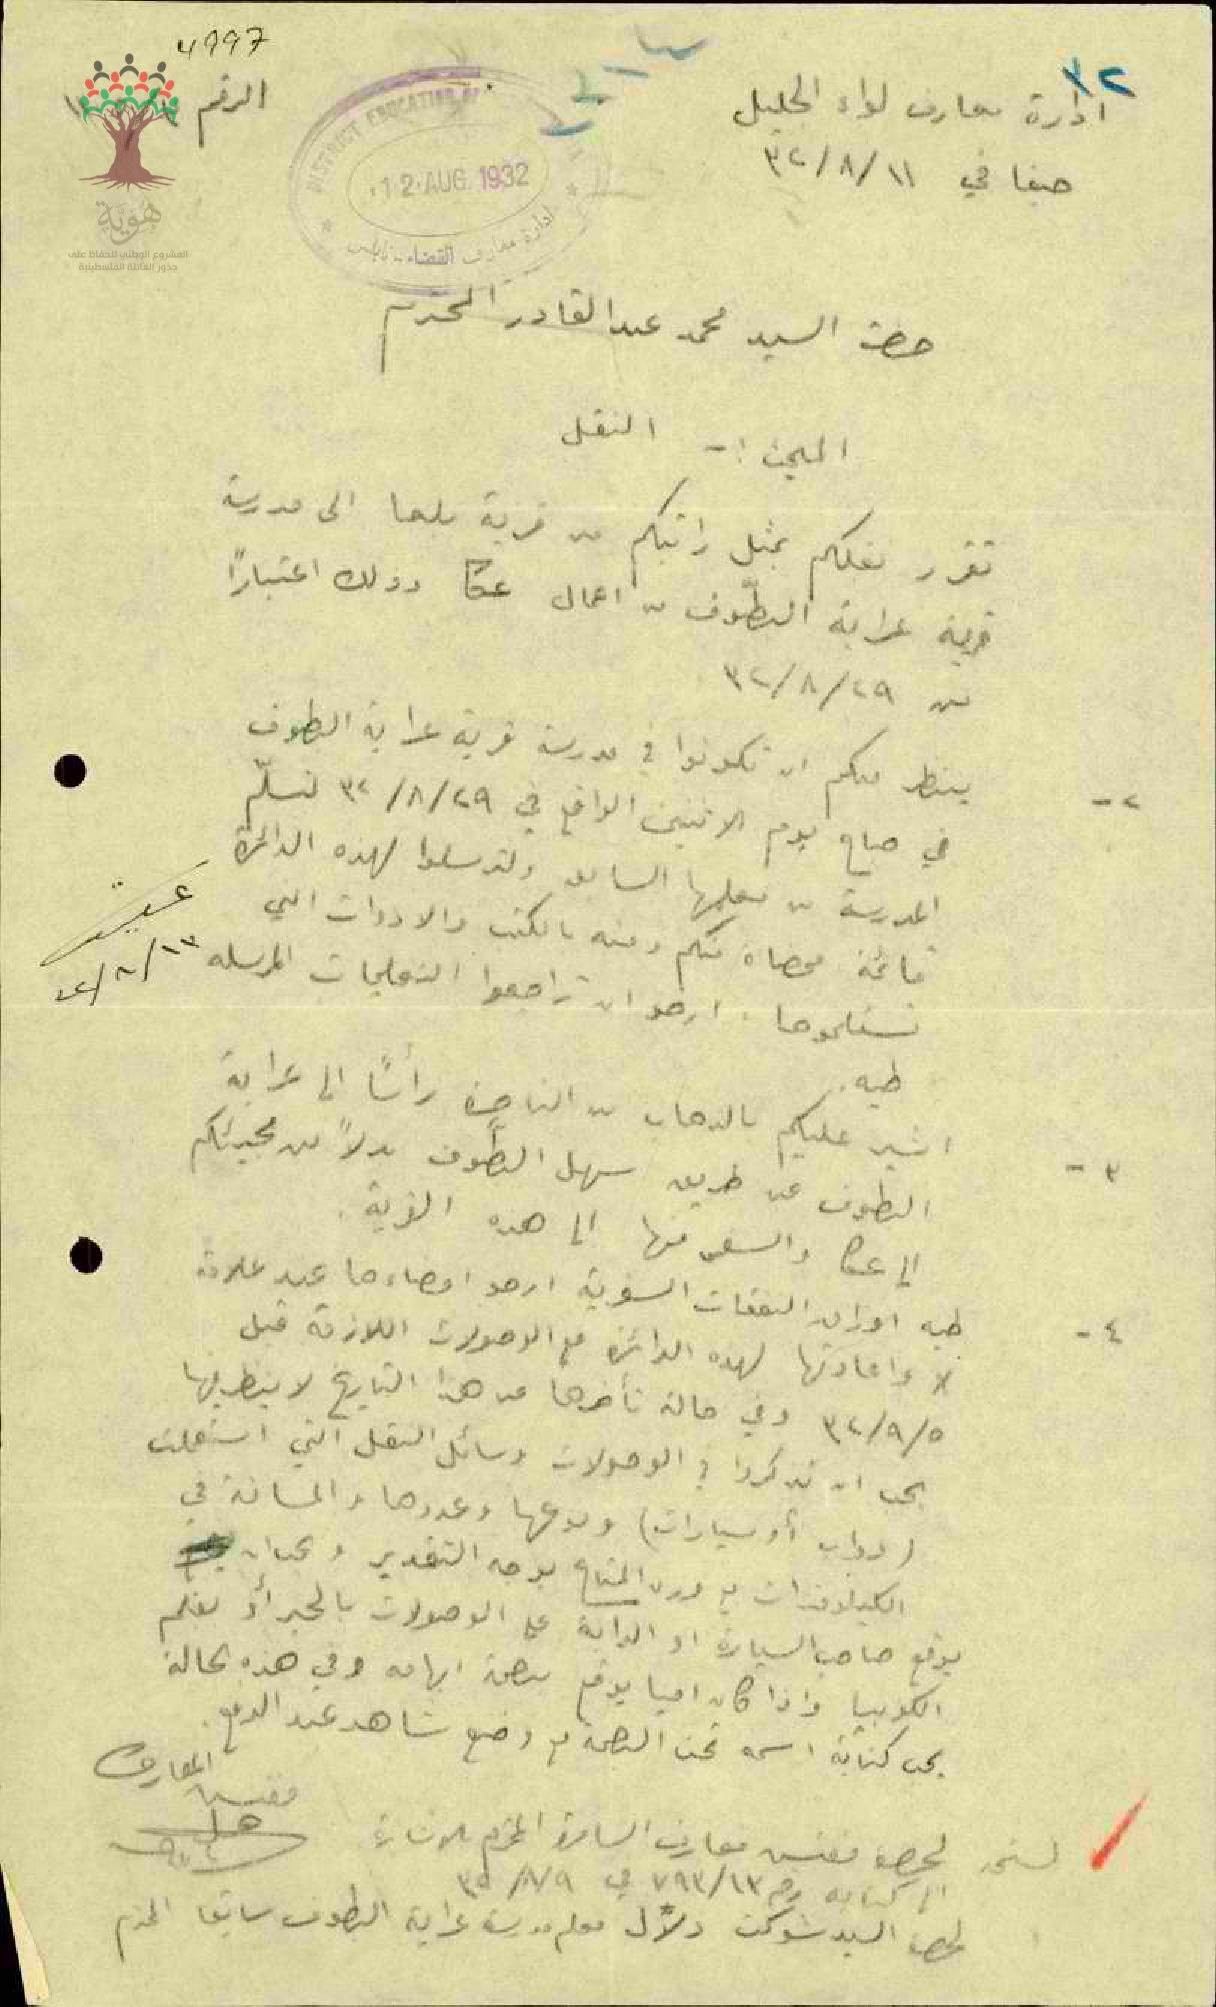 ٣٢
4997
ادارة معارف لواء الجليل
الرقم
حيفا في ١١/٨/٣٢
DISTRICT EDUCATION
12 AUG 1932
ادارة معارف القضاء - نابلس
هُوِيَّة
المشروع الوطني للحفاظ على
جذور العائلة الفلسطينية
حضرة السيد محمد عبد القادر المحترم
المبحث :- النقل
تقرر نقلكم بمثل راتبكم من قرية الى مدرسة
قرية عرابة البطّوف من اعمال عكا وذلك اعتباراً
من ٢٩/٨/٣٢
٢- ينتظر منكم ان تكونوا في مدرسة قرية عرابة البطوف
في صباح يوم الاثنين الواقع في ٢٩/٨/٣٢ لتسلّم
المدرسة من معلمها السابق ولترسلوا لهذه الدائرة
قائمة ممضاة منكم ومنه بالكتب والادوات التي
تستلموها . ارجو ان تراجعوا التعليمات المرسله
طيه .
١٣/٨/٣٢
٣- اشير عليكم بالذهاب من الناصرة رأساً الى عرابة
البطوف عن طريق سهل البطّوف بدلاً من مجيئكم
الى عكا والسفر منها الى هذه القرية .
٤- طيه اوراق النفقات السفرية ارجو امضاءها عند علامة
X واعادتها لهذه الدائرة مع الوصولات اللازمة قبل
٥/٩/٣٢ وفي حالة تأخرها عن هذا التاريخ لا ينظر فيها
يجب ان تذكروا في الوصولات وسائل النقل التي استعملت
(دواب أو سيارات) ونوعها وعددها والمسافة في
الكيلومترات مع وزن المتاع بوجه التقدير ويجب ان
يوقع صاحب السيارة او الدابة على الوصولات بالحبر أو بقلم
الكوبيا واذا كان اميا يوقع ببصمة ابهامه وفي هذه الحالة
يجب كتابة اسمه تحت البصمة مع وضع شاهد عند الدفع .
مفتش المعارف
نسخة لحضرة مفتش معارف السامرة المحترم بالاشارة
الى كتابه رقم ٧٩٣/١٣ في ٩/٨/٣٢
لحضرة السيد شوكت دلال معلم مدرسة عرابة البطوف سابقا المحترم